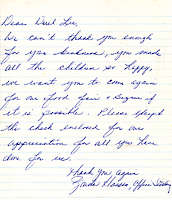 Dear Davil Lee,
We can't thank you enough
for your kindness, you made
all the children so happy,
we want you to come again
for our food fair & Bazaar if
it is possible. Please accept
the check enclosed for our
appreciation for all you have
done for us.
Thank you again
Linda